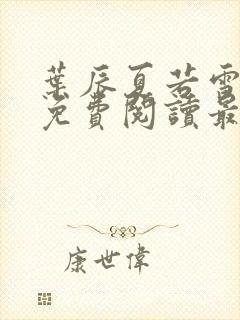 葉辰夏若雪
免費閱讀最
康世偉